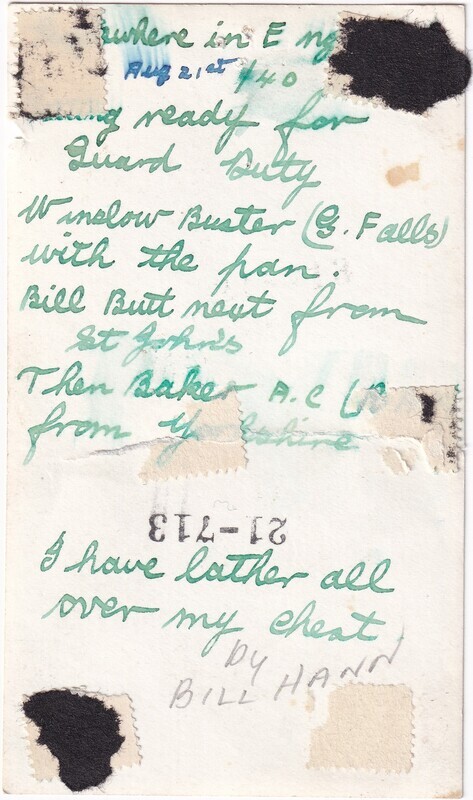 where in Eng
Aug 21st /40
ing ready for
Guard Duty
Winslow Buster (G. Falls)
with the pan.
Bill Butt next from
St John's
Then Baker A.C
from Yorkshire
21-713
I have lather all
over my chest
by
BILL HANN